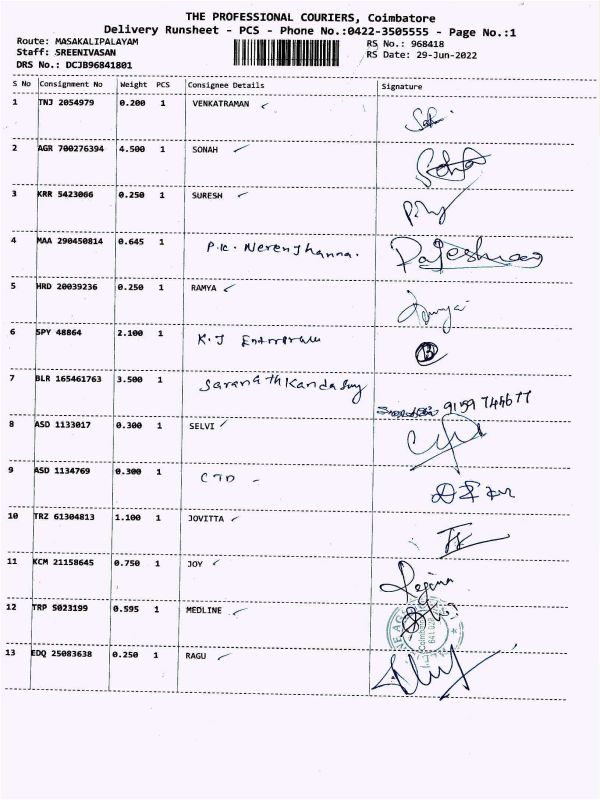 THE PROFESSIONAL COURIERS, Coimbatore
Delivery Runsheet - PCS - Phone No.:0422-3505555 - Page No.:1
Route: MASAKALIPALAYAM RS No.: 968418
Staff: SREENIVASAN RS Date: 29-Jun-2022
DRS No.: DCJB96841801
S No Consignment No Weight PCS Consignee Details Signature
1 TNJ 2054979 0.200 1 VENKATRAMAN
2 AGR 700276394 4.500 1 SONAH
3 KRR 5423066 0.250 1 SURESH
4 MAA 290450814 0.645 1 P.K. Nerenjhanna. Rajeshwari
5 HRD 20039236 0.250 1 RAMYA Ramya
6 SPY 48864 2.100 1 K.J
7 BLR 165461763 3.500 1 Saranath Kandasamy 9159 745677
8 ASD 1133017 0.300 1 SELVI
9 ASD 1134769 0.300 1 CTD
10 TRZ 61304813 1.100 1 JOVITTA
11 KCM 21158645 0.750 1 JOY Regina
12 TRP 5023199 0.595 1 MEDLINE
13 EDQ 25083638 0.250 1 RAGU